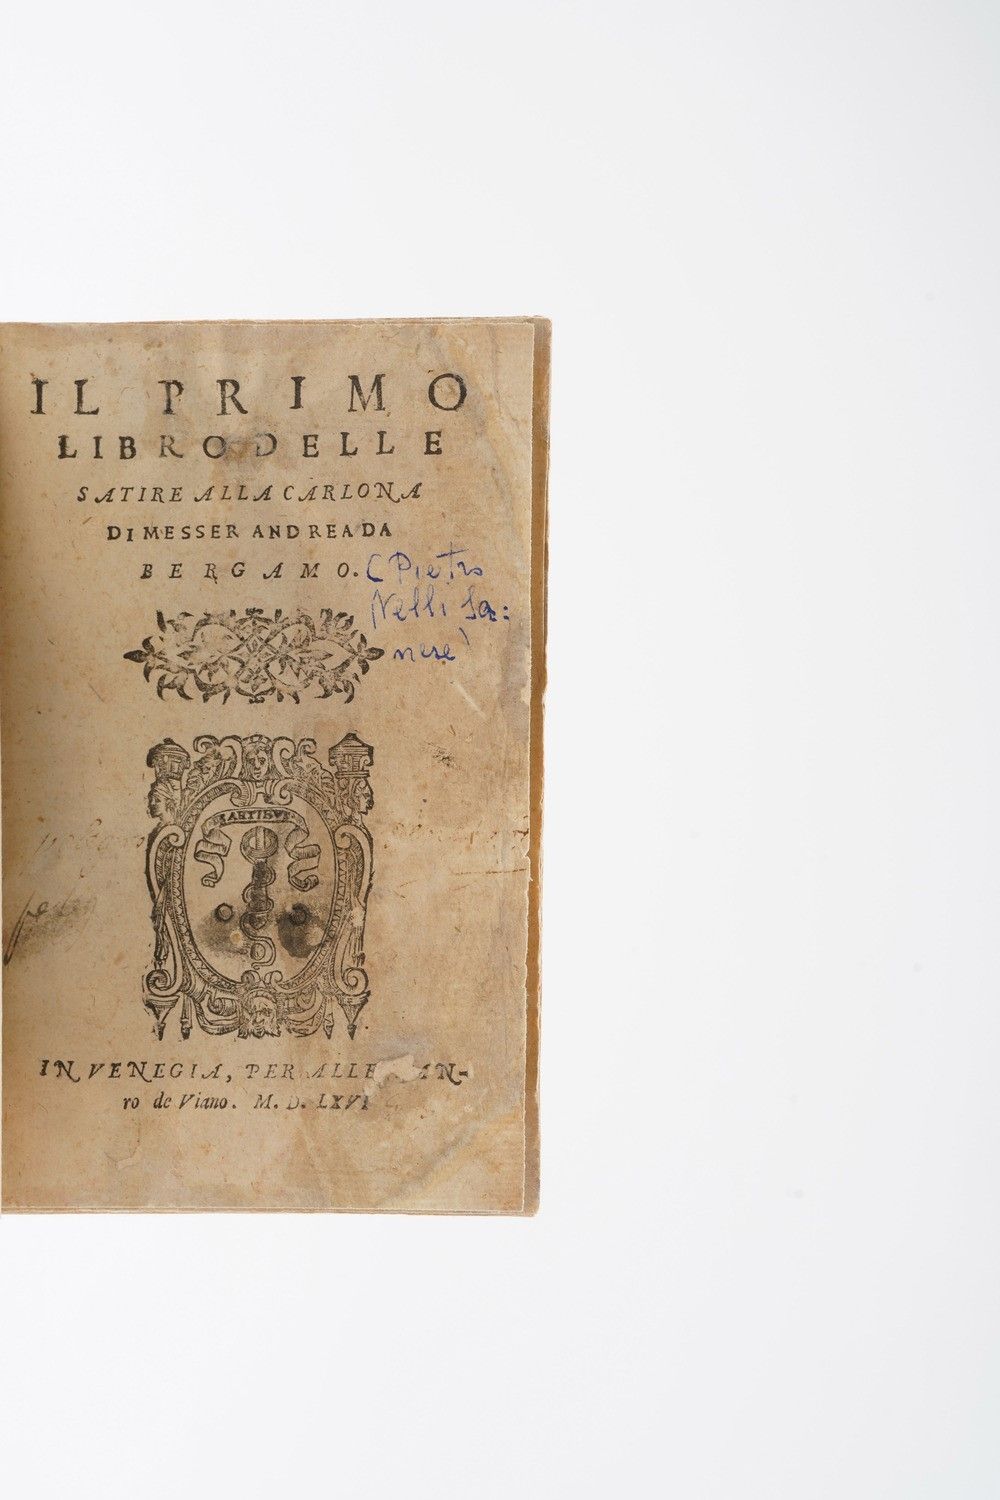 IL PRIMO
LIBRO DELLE
SATIRE ALLA CARLONA
DI MESSER ANDREA DA
BERGAMO. (Pietro
Nelli Sa:
nese)
ARTIBVS
IN VENEGIA, PER ALLE AN-
ro de Viano. M. D. LXVI